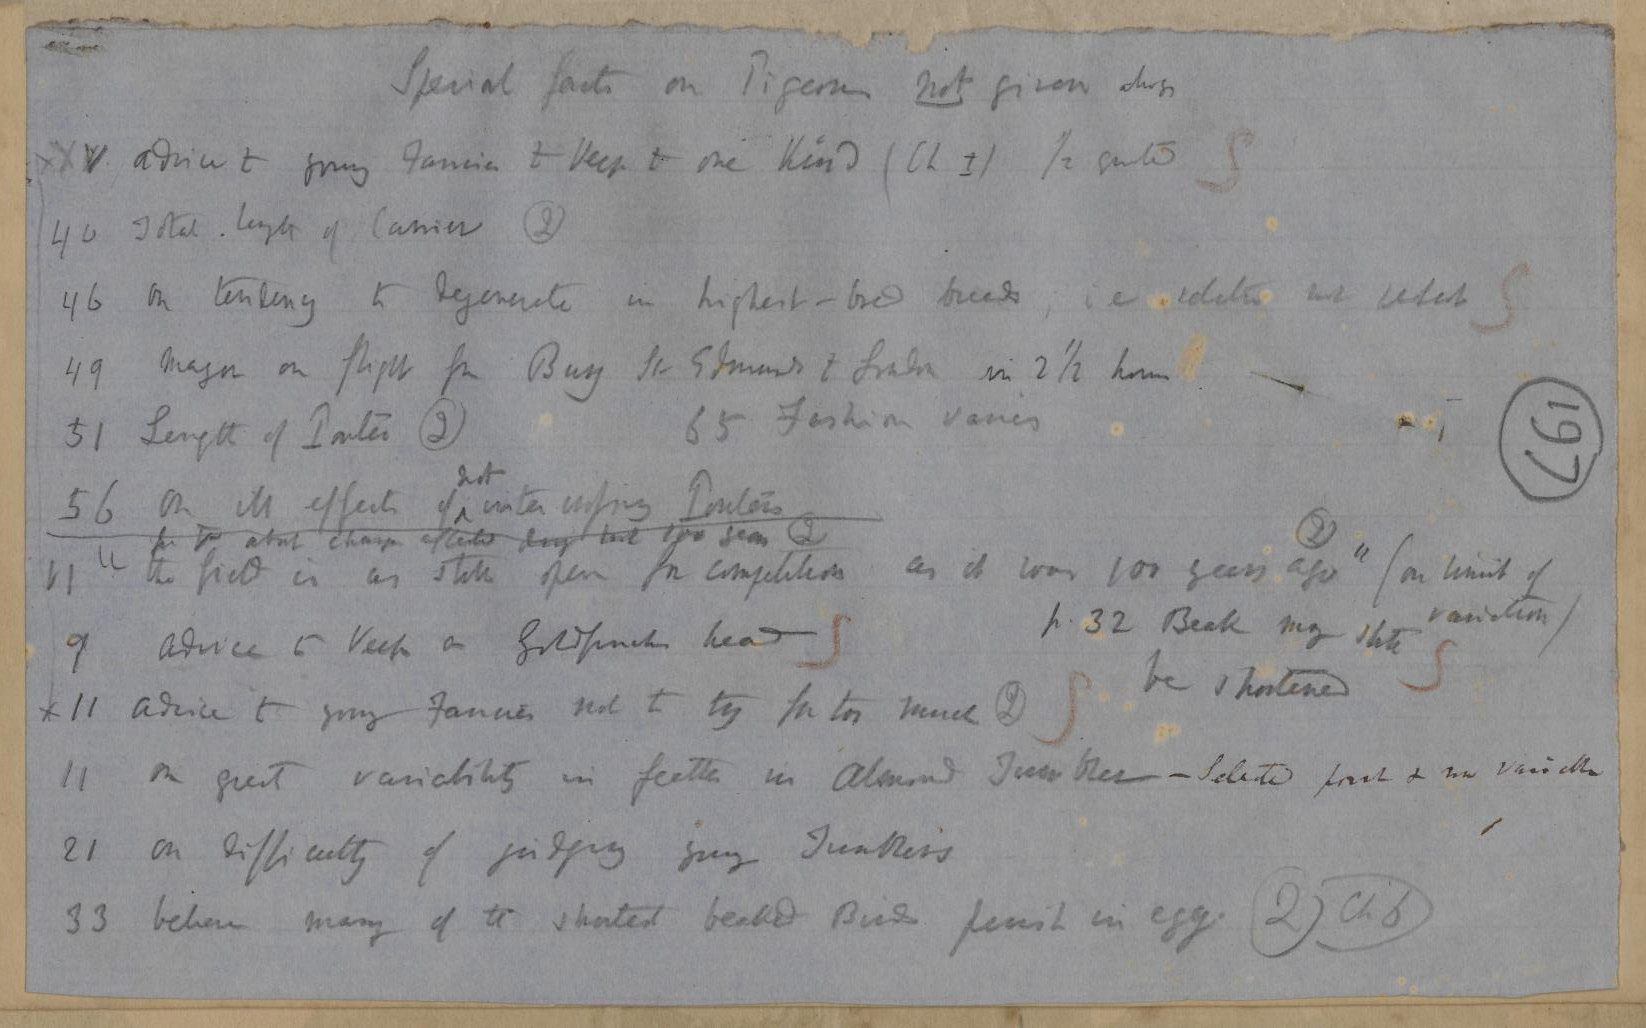 Special facts on Pigeons not given above
XXV advice to young Fancier to keep to one Kind (Ch I) quoted
40 Total length of Carrier (2)
46 on tendency to degenerate in highest-bred breeds, i.e. selection not select
49 Mayor on flight from Bury St Edmunds to London in 2 1/2 hours
51 Length of Pouter (2) 65 Fashion varies
197
56 on ill effects of not intercrossing Pouters
about change 100 years (2)
11 "the field is as still open for competition as it was 100 years ago" (2) (on limit of variation)
9 advice to keep a Goldfinches head
p. 32 Beak may still be shortened
x 11 advice to young Fanciers not to try for too much (2)
11 on great variability in feather in Almond Tumbler — Selected point & variable
21 on difficulty of judging young Tumblers
33 believe many of the shortest beaked Birds perish in egg. (2) Ch 6